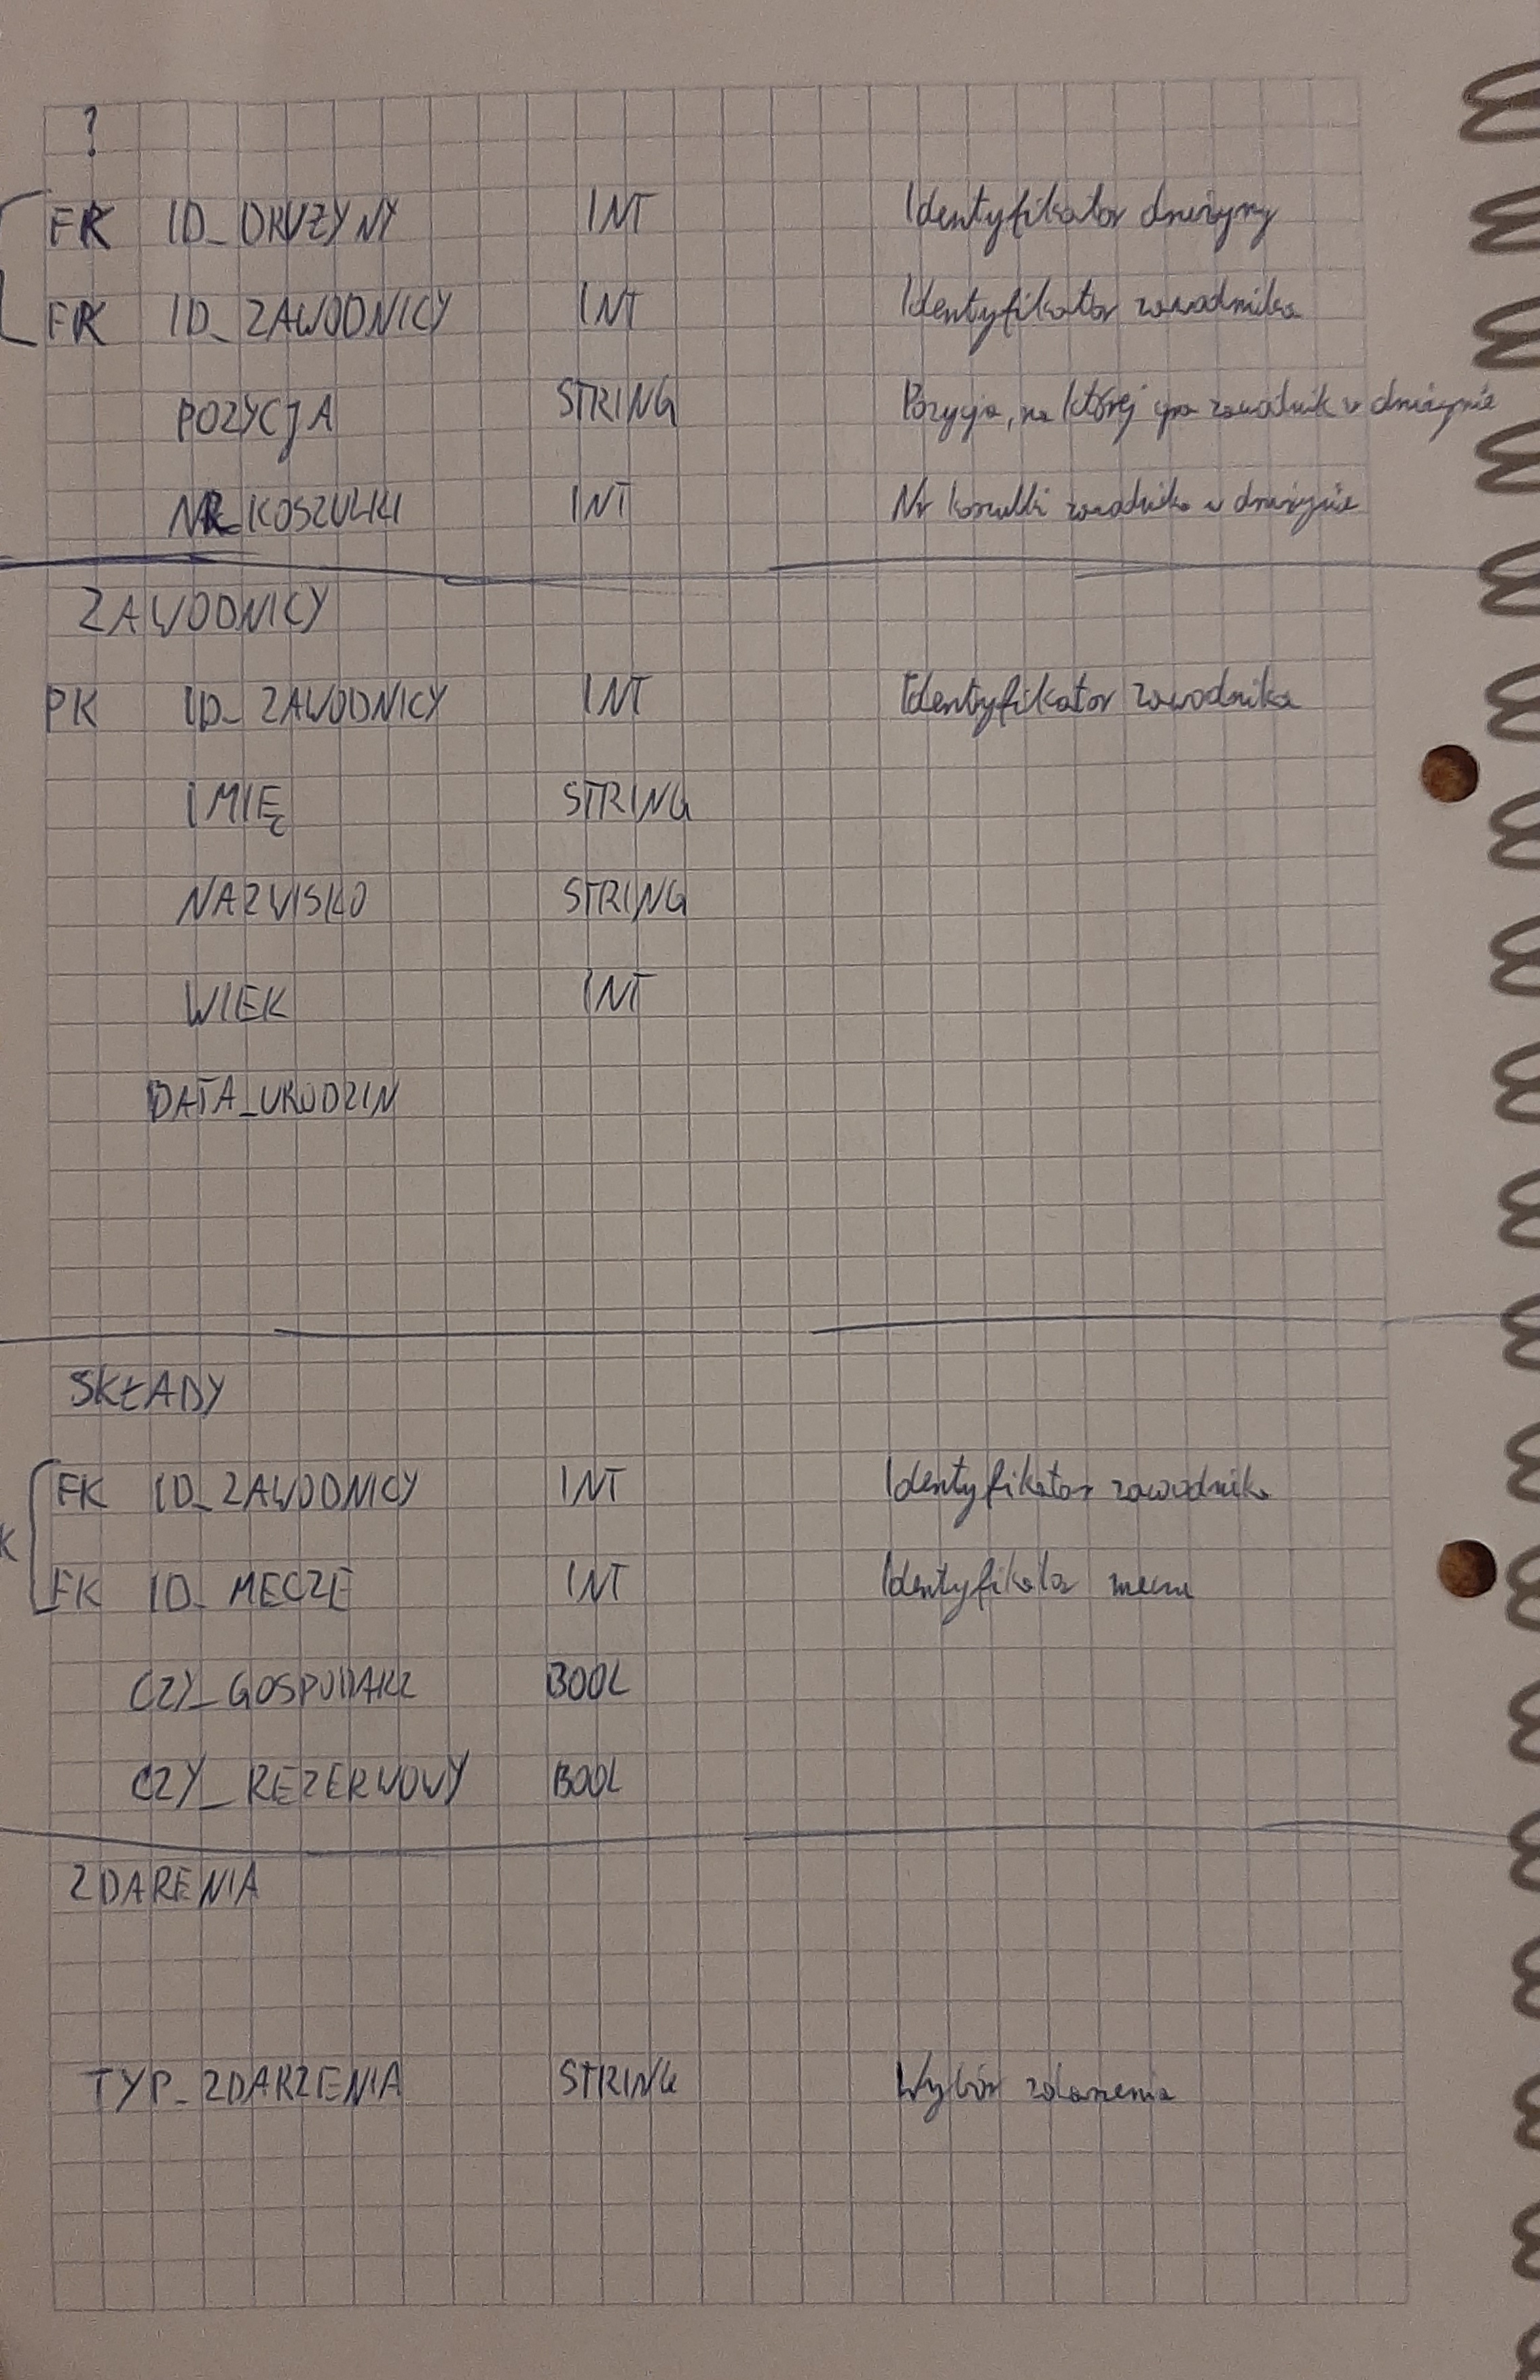 ?
FK ID_DRUŻYNY INT Identyfikator drużyny
FK ID_ZAWODNICY INT Identyfikator zawodnika
POZYCJA STRING Pozycja, na której gra zawodnik w drużynie
NR_KOSZULKI INT Nr koszulki zawodnika w drużynie
ZAWODNICY
PK ID_ZAWODNICY INT Identyfikator zawodnika
IMIĘ STRING
NAZWISKO STRING
WIEK INT
DATA_URODZIN
SKŁADY
FK ID_ZAWODNICY INT Identyfikator zawodnika
K
FK ID_MECZE INT Identyfikator meczu
CZY_GOSPODARZ BOOL
CZY_REZERWOWY BOOL
ZDARENIA
TYP_ZDARZENIA STRING Wybór zdarzenia